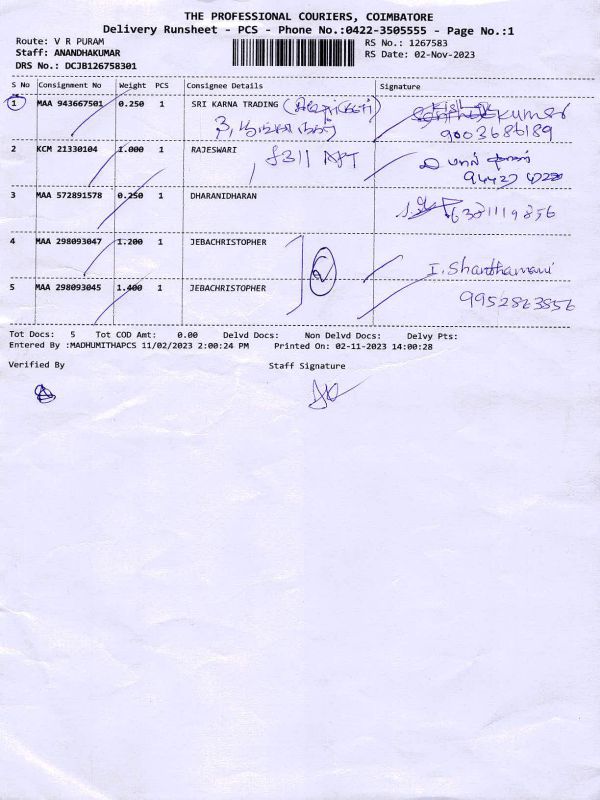 THE PROFESSIONAL COURIERS, COIMBATORE
Delivery Runsheet - PCS - Phone No.:0422-3505555 - Page No.:1
Route: V R PURAM
RS No.: 1267583
Staff: ANANDHAKUMAR
RS Date: 02-Nov-2023
DRS No.: DCJB126758301
S No Consignment No Weight PCS Consignee Details Signature
1 MAA 943667501 0.250 1 SRI KARNA TRADING
9003686189
2 KCM 21330104 1.000 1 RAJESWARI
3 MAA 572891578 0.250 1 DHARANIDHARAN
6381119856
4 MAA 298093047 1.200 1 JEBACHRISTOPHER
2 I. Shanthamani
5 MAA 298093045 1.400 1 JEBACHRISTOPHER 9952863856
Tot Docs: 5 Tot COD Amt: 0.00 Delvd Docs: Non Delvd Docs: Delvy Pts:
Entered By :MADHUMITHAPCS 11/02/2023 2:00:24 PM Printed On: 02-11-2023 14:00:28
Verified By Staff Signature